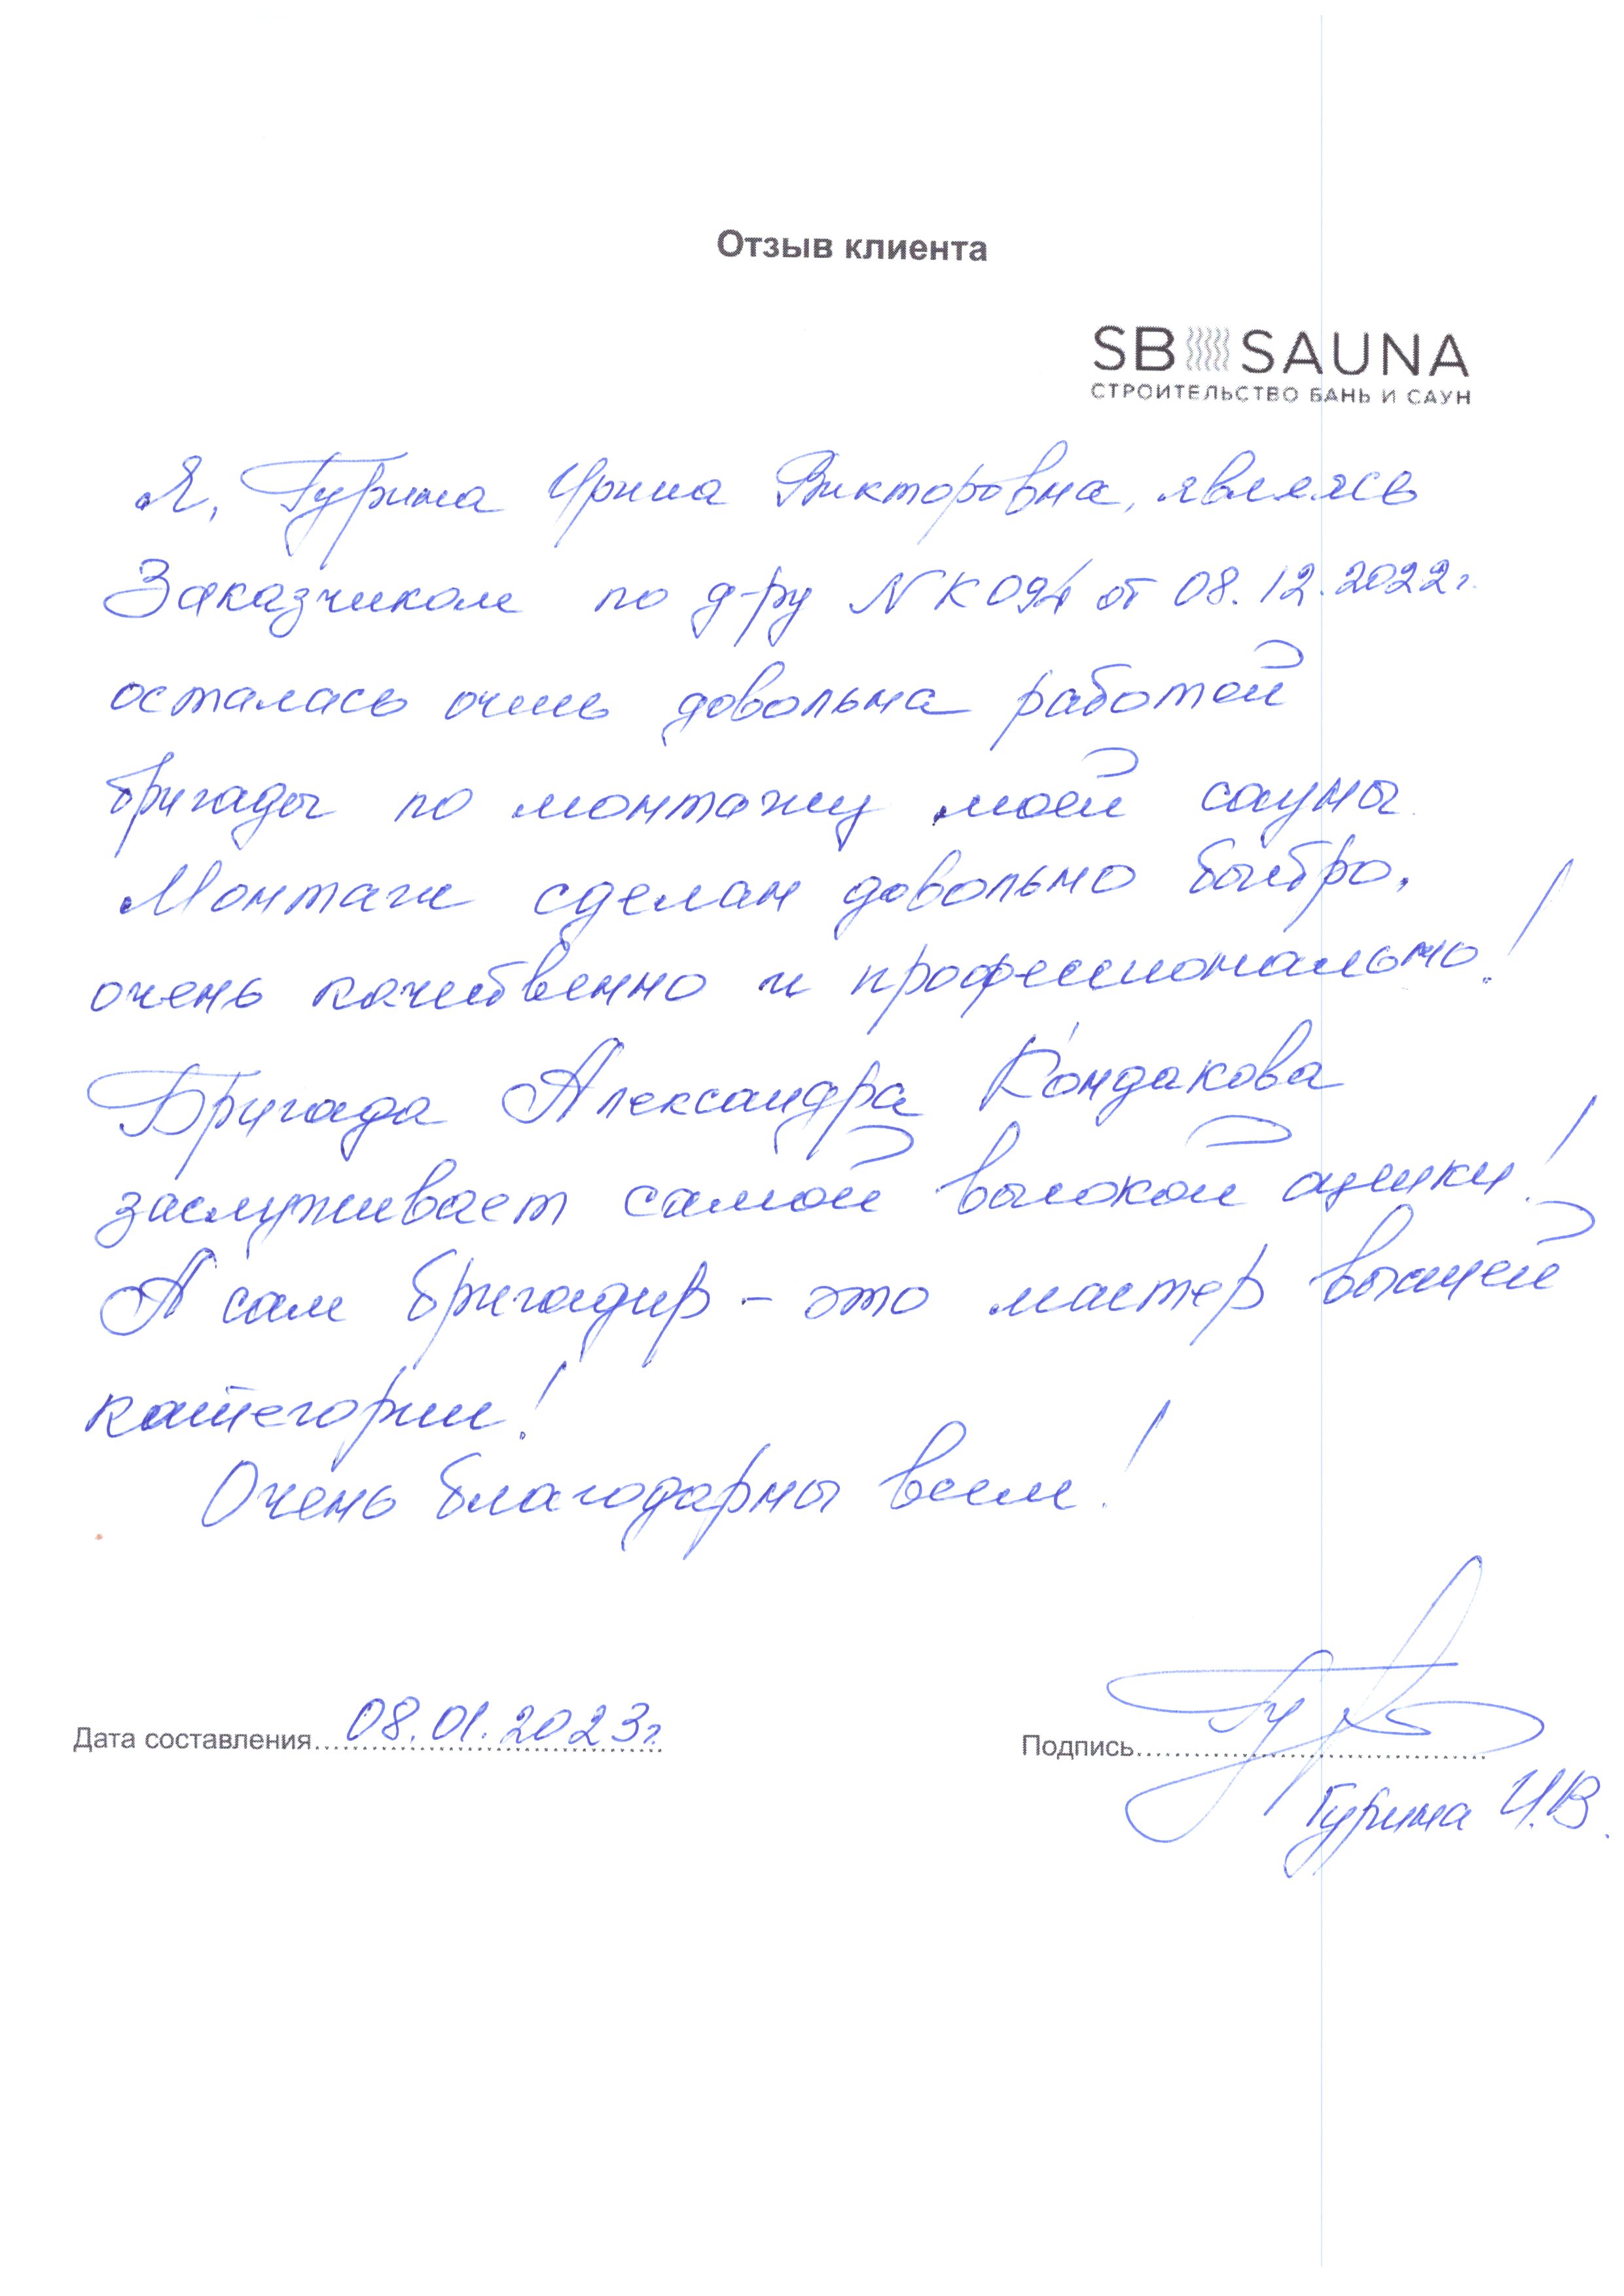 Отзыв клиента
SB SAUNA
СТРОИТЕЛЬСТВО БАНЬ И САУН
Я, Гурина Ирина Викторовна, являясь
Заказчиком по д-ру N K094 от 08.12.2022г.
осталась очень довольна работой
бригады по монтажу моей сауны.
Монтаж сделан довольно быстро,
очень качественно и профессионально!
Бригада Александра Кондакова
заслуживает самой высокой оценки!
А сам бригадир - это мастер высшей
категории!
Очень благодарны всем!
Дата составления 08.01.2023г.
Подпись
Гурина И.В.